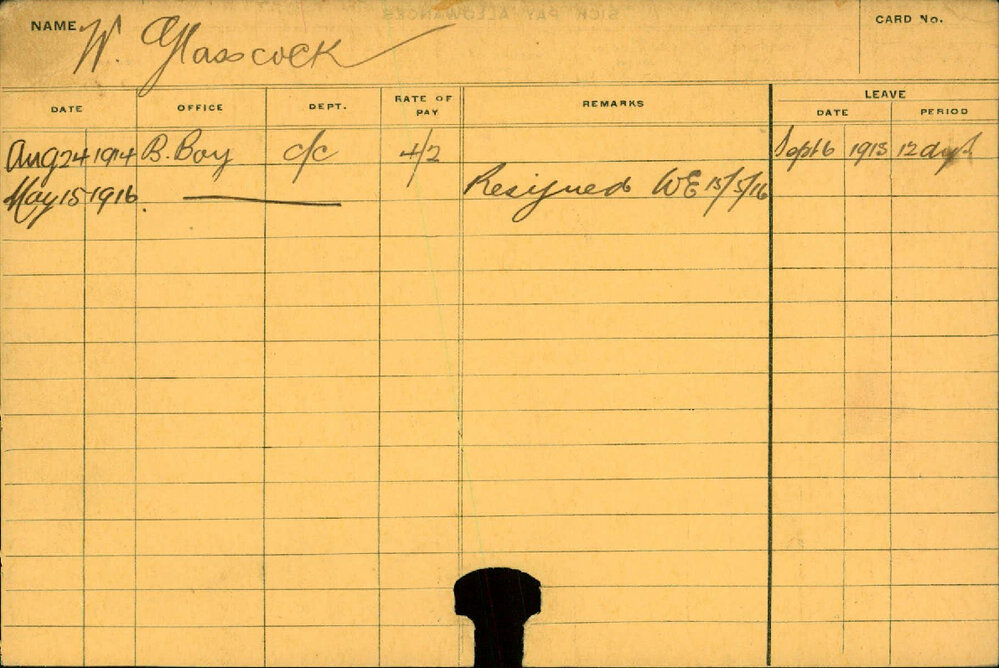 NAME W. Glasscock
CARD No.
DATE OFFICE DEPT. RATE OF PAY REMARKS LEAVE
DATE PERIOD
Aug 24 1914 B. Boy c/c 4/2 Sept 6 1915 12 days
May 15 1916. Resigned WE 15/5/16